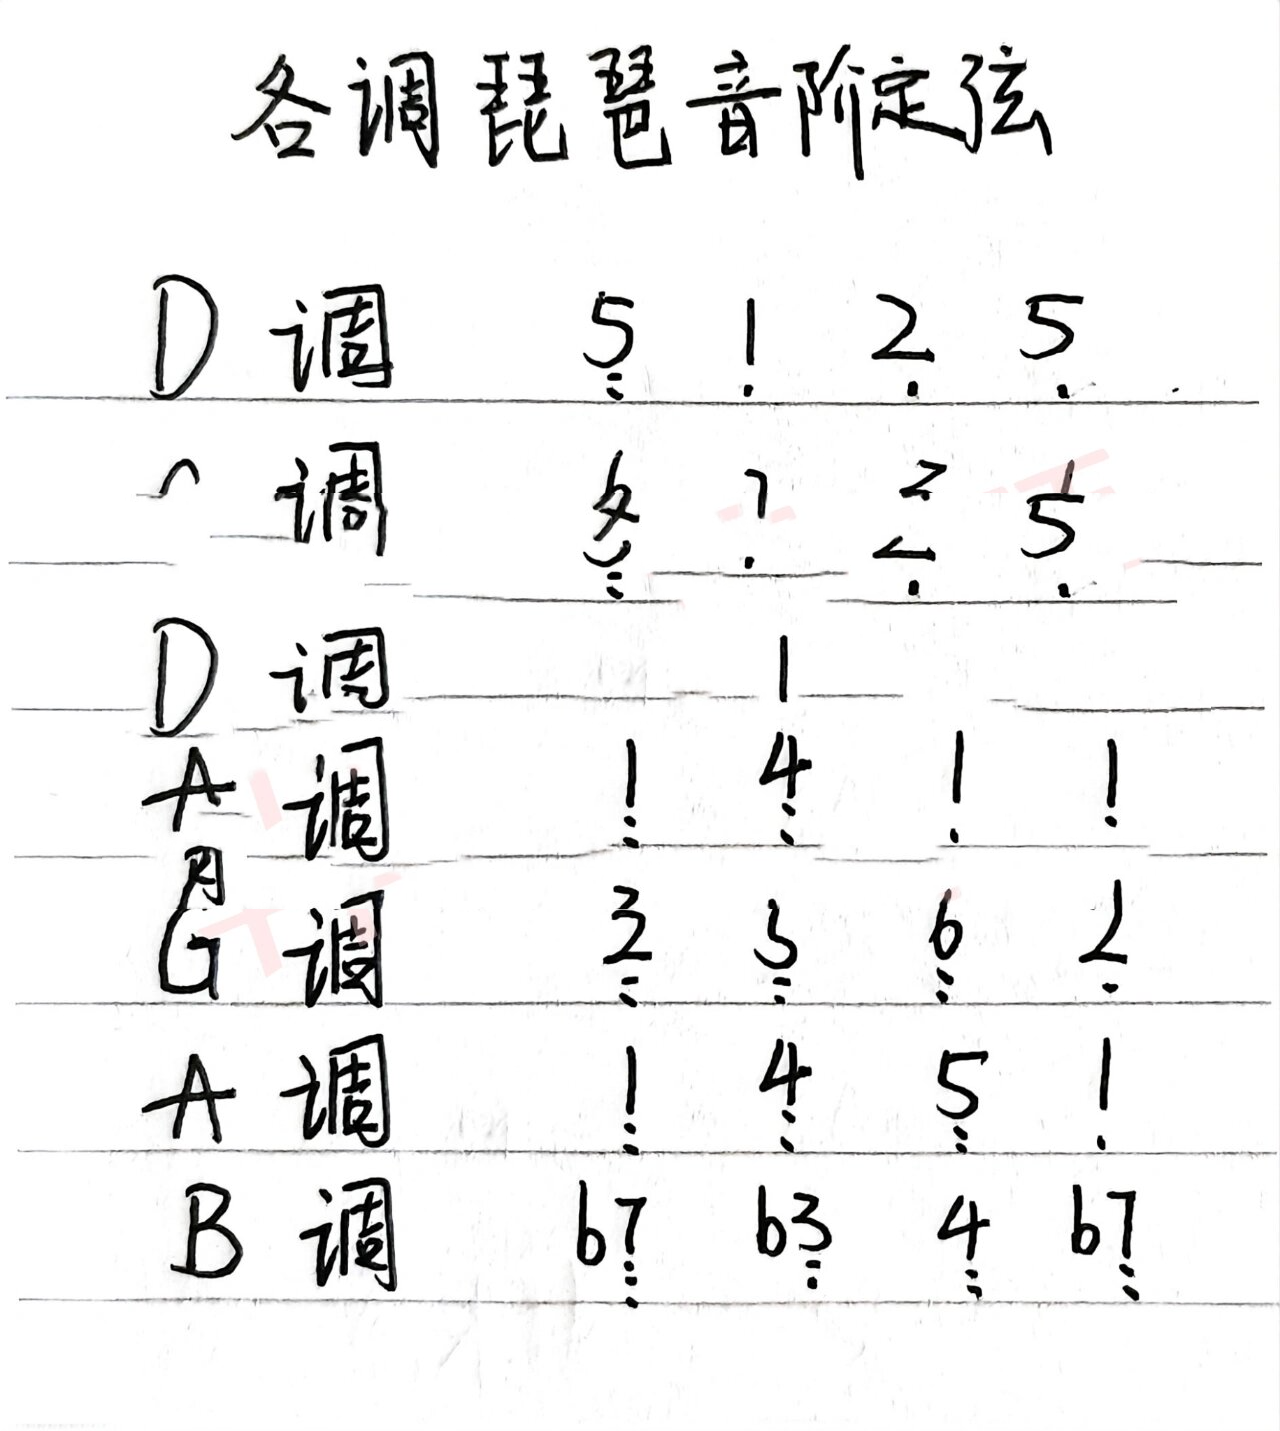 各调琵琶音阶定弦
D 调 5 1 2 5
调 5
D 调 1
A 调 1 4 1 1
G 调 6
A 调 1 4 5 1
B 调 b7 b3 4 b7